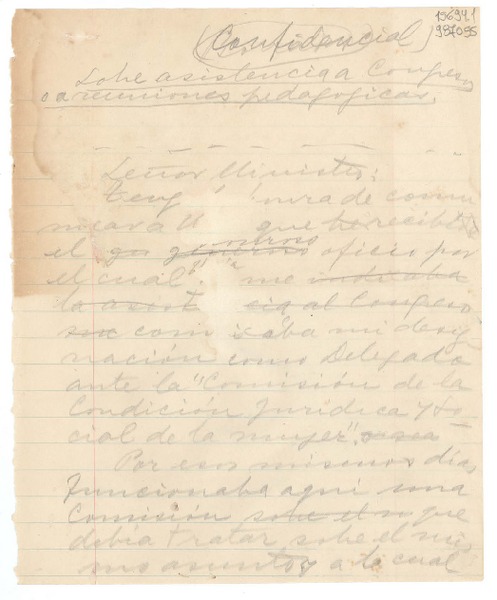 156941
987055
(Confidencial)
Sobre asistencia a Congresos
o a reuniones pedagogicas.
Señor Ministro:
Teng onra de comu
nicar a U que he recibido
el oficio por
el cual me indicaba
la asist cia al Congreso
comi aba mi desig
nación como Delegada
ante la "Comisión de la
Condición Jurídica y So
cial de la mujer", o sea
Por esos mismos días,
funcionaba aqui una
Comisión sobre el que
debía tratar sobre el mis
mo asunto y a la cual